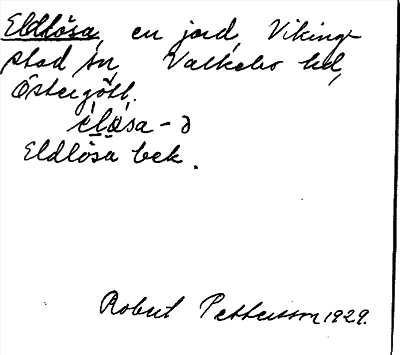 Eldlösa, en jord, Viking-
stad sn, Valkebo hd,
Östergötl.
élòsa - ð
Eldlösa bek.
Robert Pettersson 1929.